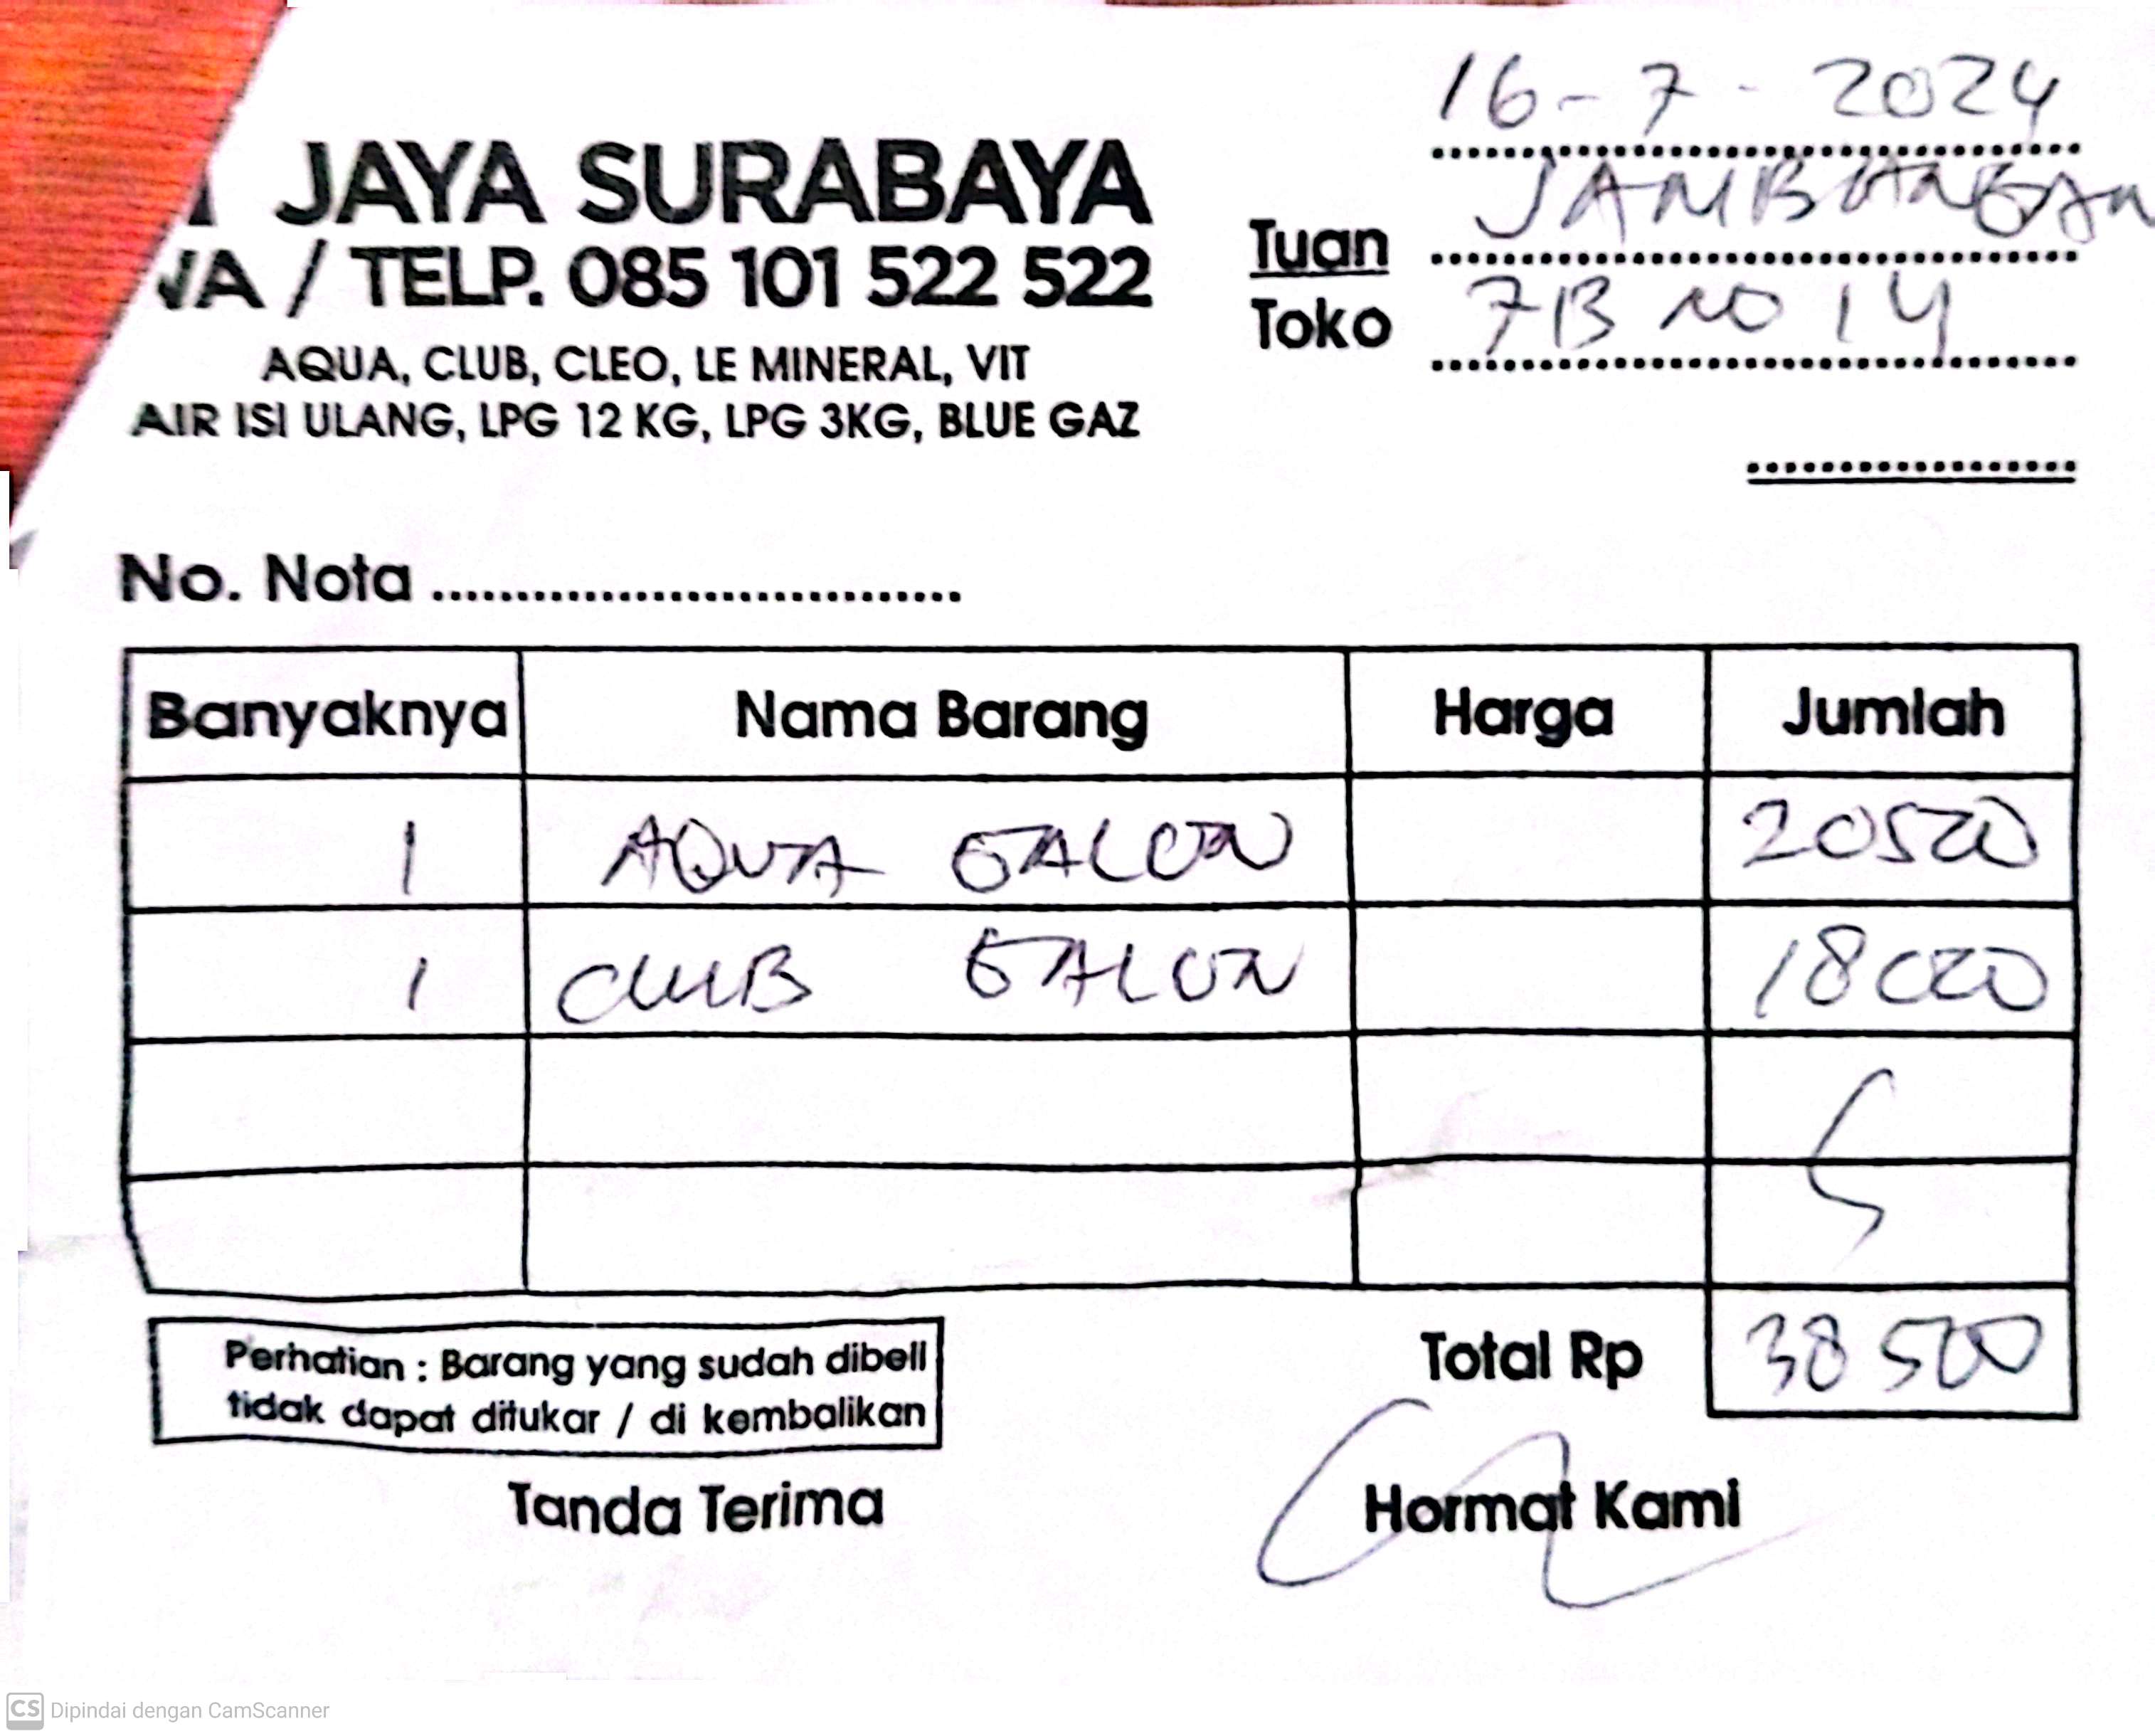 JAYA SURABAYA
/ TELP. 085 101 522 522
AQUA, CLUB, CLEO, LE MINERAL, VIT
AIR ISI ULANG, LPG 12 KG, LPG 3KG, BLUE GAZ
16-7-2024
Tuan JAMBANGAN
Toko 7B NO 14
No. Nota
Banyaknya Nama Barang Harga Jumlah
1 AQUA GALON 20500
1 CLUB GALON 18000
Total Rp 38500
Perhatian : Barang yang sudah dibeli
tidak dapat ditukar / di kembalikan
Tanda Terima Hormat Kami
CS Dipindai dengan CamScanner